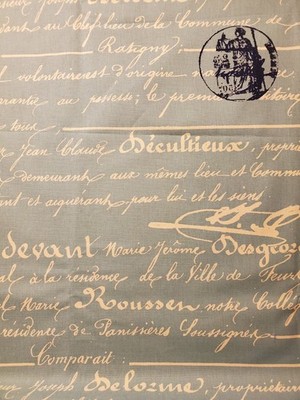 au Chef lieu de la Commune de
Ratigny;
volontairest d'origine
garantie au possess; le premier
tous
Jean Claude Décultieux, propri
demeurant aux mêmes lieu et Commun
nt et aquerant pour lui et les siens
devant Marie Jerôme Desgéor
al à la résidence de la Ville de Feur
l Marie Roussen notre Colleg
résidence de Panissières Soussignés
Comparait :
eur Joseph Delorme, propriétaire